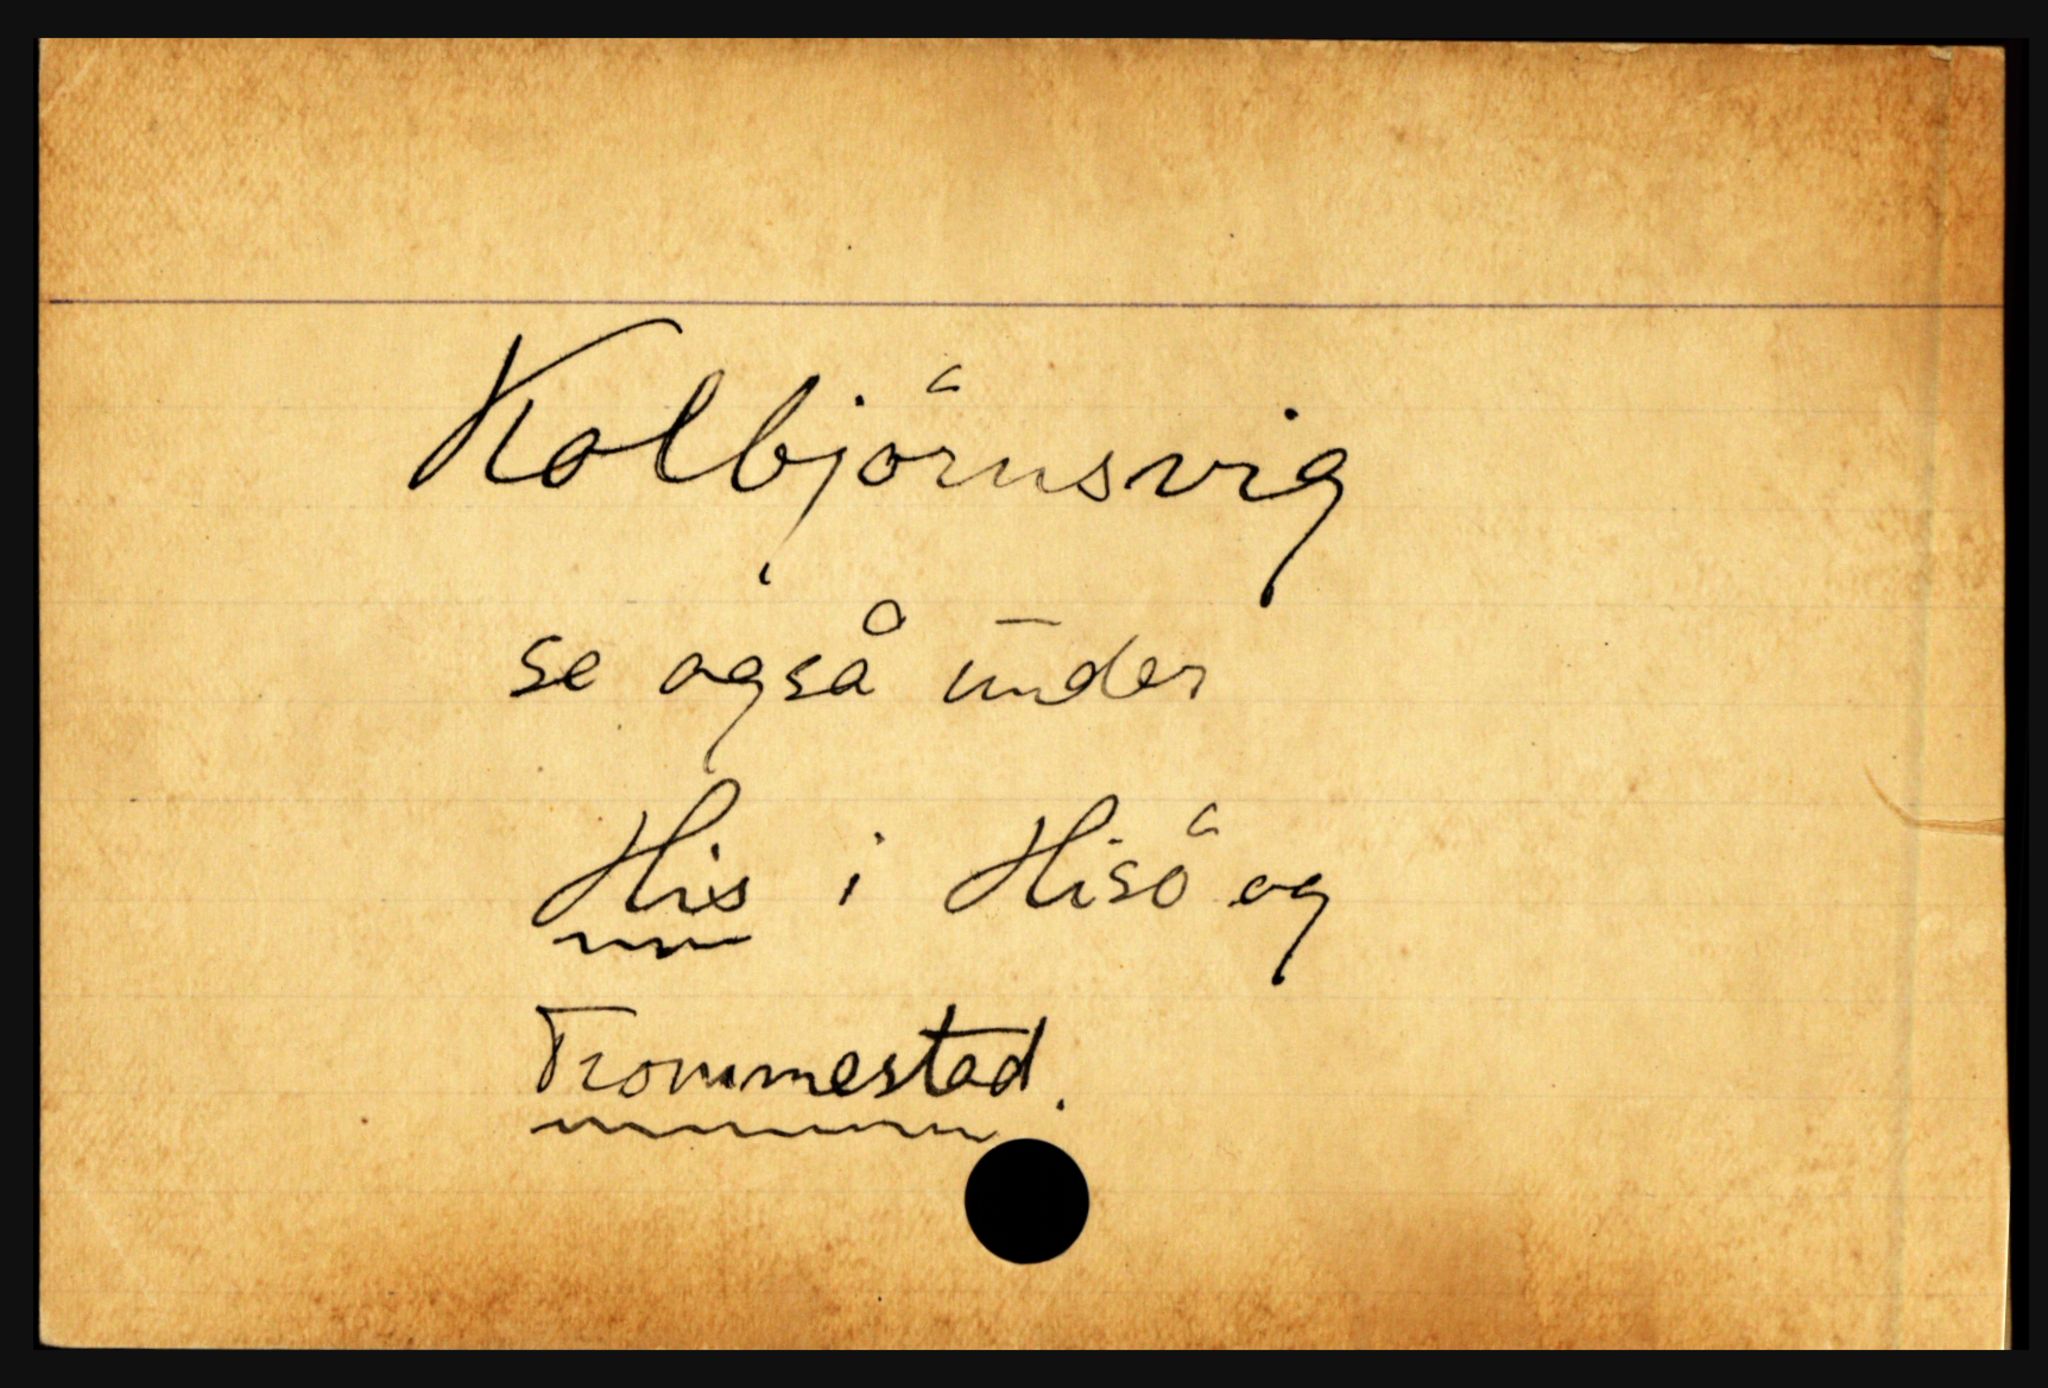 Kolbjörnsvig
se også under
His i Hisö og
Trommestad.